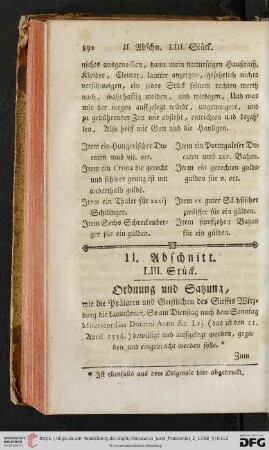 292 II. Abschn. LIII. Stück.
nichts ausgenoßen, dann mein notturfftigen Haußrath,
Kleider, Cleinat, lauter anzeigen, gefehrlich nichts
verschweigen, ein jedes Stück seinen rechten werth
nach, wahrhafftig melden, und würdigen, Und was
mir der wegen auffgelegt würdt, ungewaigert, und
zu gebührender Zeit wie obsteht, entrichten und bezah-
len, Also helff mir Gott und die Hayligen.
Item ein Hungerischer Du-
caten und vjs. ort.
Item ein Crona die gerecht
und schwer genug ist um
anderthalb guldt.
Item ein Thaler für xxxij
Schillinger.
Item Sechs Schreckenber-
ger für ein gülden.
Item ein Portugaleser Du-
caten und xxv. Batzen.
Item ein gerechten goldt-
gulden für v. ort.
Item xx guter Sächsischer
zwölffer für ein gülden.
Item fünffzehen Batzen
für ein gülden.
II. Abschnitt.
LIII. Stück.
Ordnung und Satzung,
wie die Prälaten und Geistlichen des Stiffts Würz-
burg die Landtsteuer, So am Dienstag nach dem Sonntag
Misericordias Domini Anno &c. Lvj. (das ist den 21.
April 1556.) bewilligt und auffgelegt worden, gege-
ben und eingebracht werden solle. *
Zum
* Ist ebenfalls aus dem Originale hier abgedruckt.